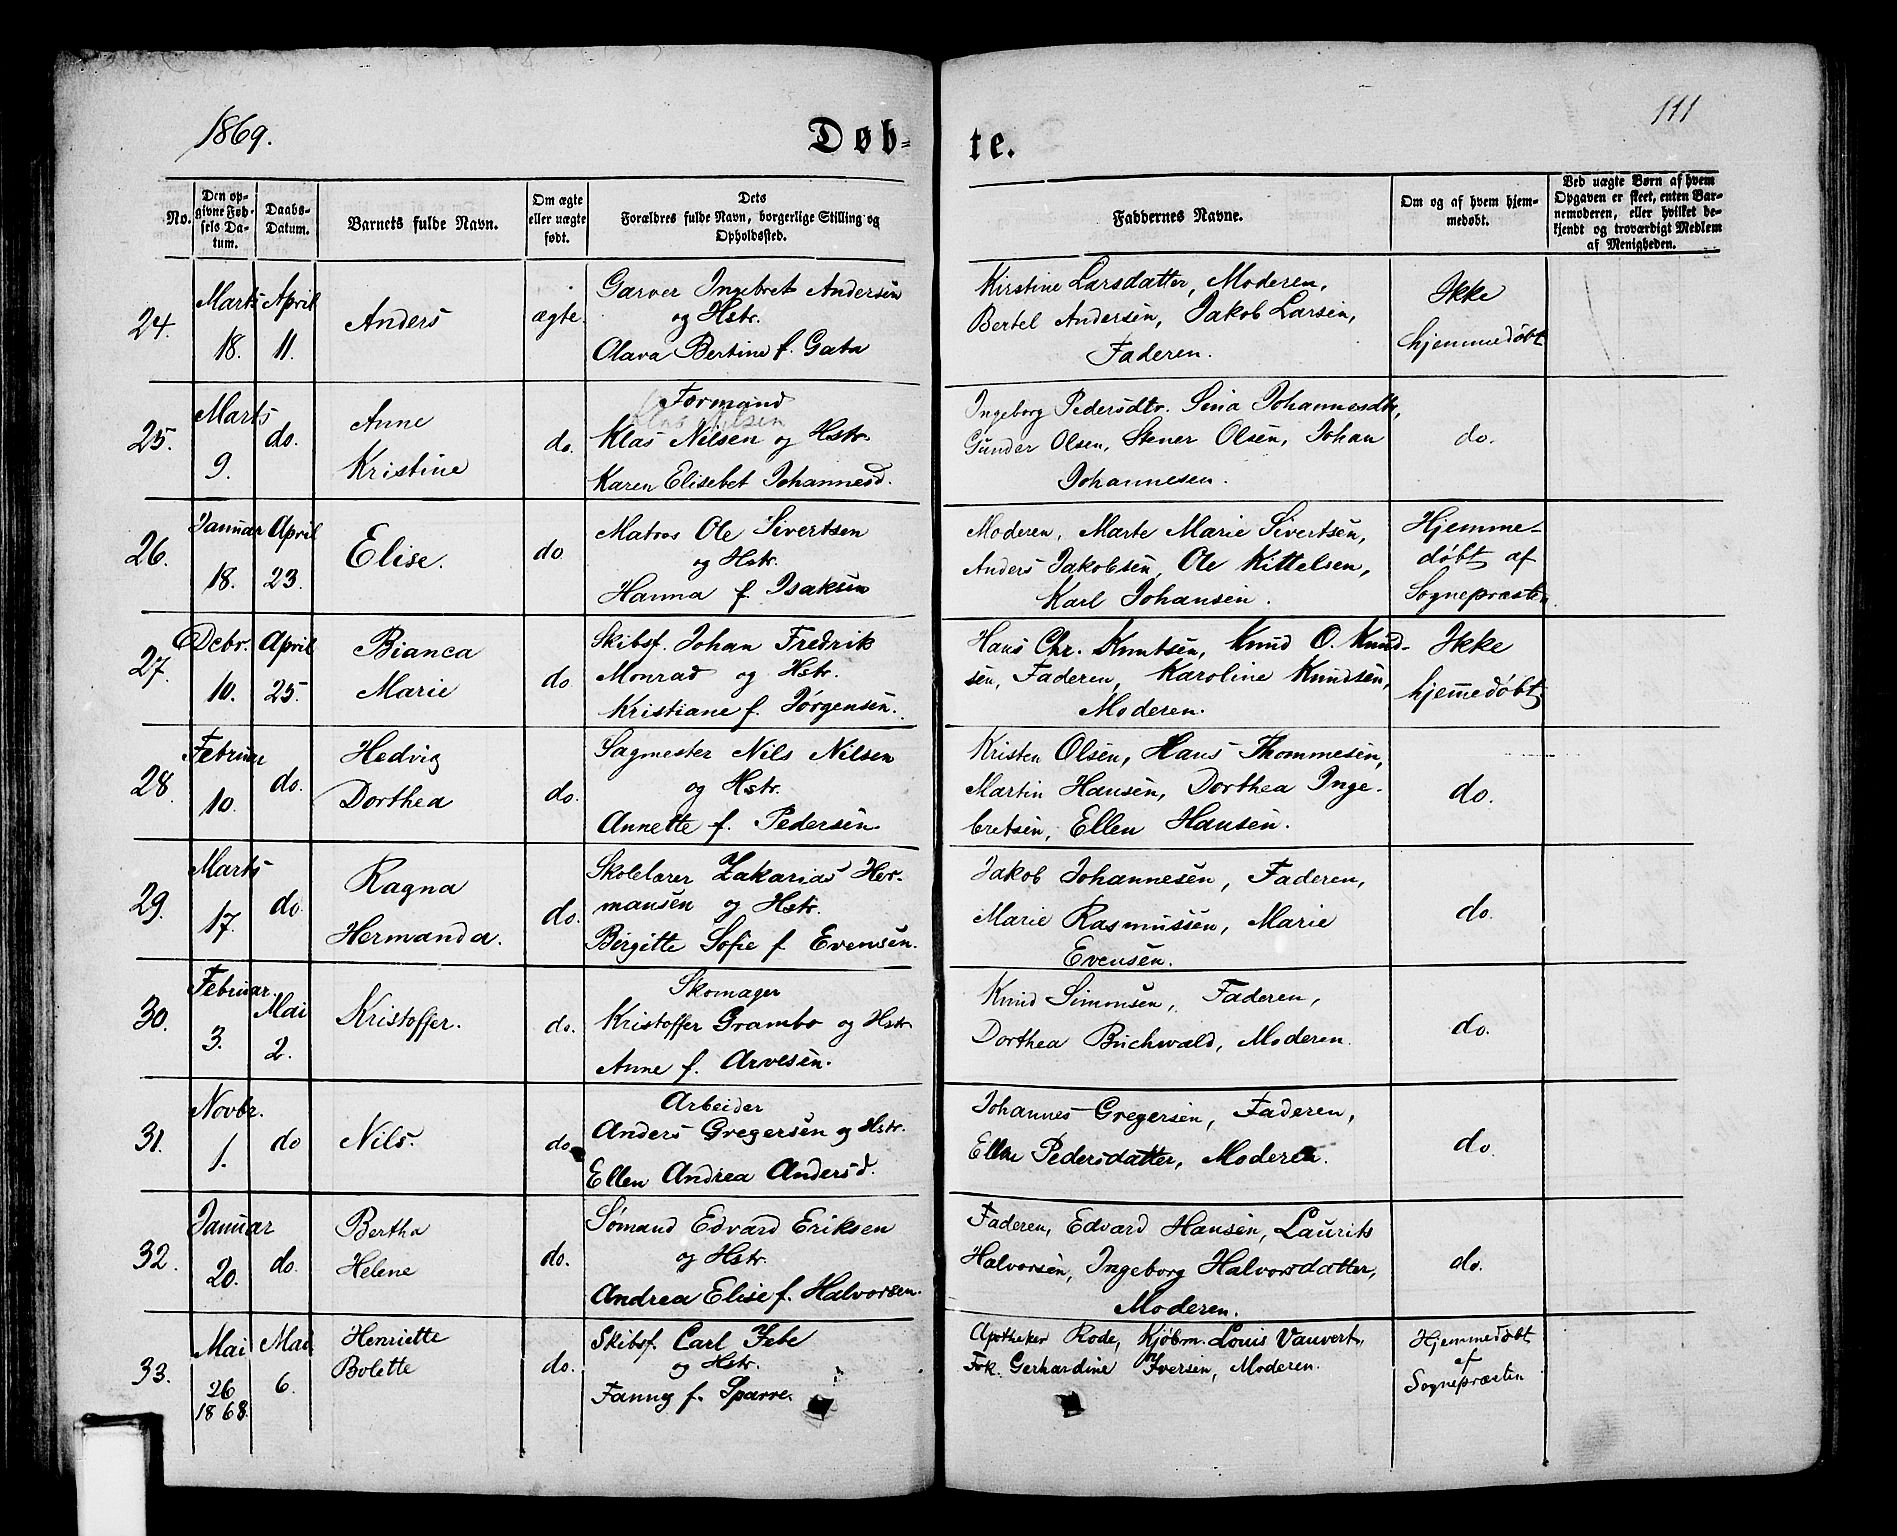 1869.
111
Døb-
te.
No.
Den op-
givne Fød-
sels Da-
tum.
Daabs-
Datum.
Barnets fulde Navn.
Om ægte
eller uægte
født.
Dets
Forældres fulde Navn, borgerlige Stilling og
Opholdssted.
Faddernes Navne.
Om og af hvem hjem-
medøbt.
Ved uægte Børn af hvem
Opgaven er skeet, enten Bar-
nemoderen, eller hvilket be-
kjendt og troværdigt Medlem
af Menigheden.
24.
Marts
18.
April
11.
Anders
ægte.
Garver Ingebret Andersen
og Hstr.
Olava Bertine f. Gata
Kirstine Larsdatter, Moderen,
Bertel Andersen, Jakob Larsen,
Faderen.
Ikke
hjemmedøbt
25.
Marts
9.
do.
Anne
Kristine
do.
Formand
Klas Nilsen og Hstr.
Karen Elisebet Johannesd.
Ingeborg Pedersdtr. Sina Johannesdtr,
Gunder Olsen, Stener Olsen, Johan
Johannesen.
do.
26.
Januar
18.
April
23.
Elise.
do
Matros Ole Sivertsen
og Hstr.
Hanna f. Isaksen
Moderen, Marte Marie Sivertsen,
Anders Jakobsen, Ole Kittelsen,
Karl Johansen.
Hjemme-
døbt af
Sognepræsten.
27.
Debr.
10.
April
25.
Bianca
Marie
do
Skibsf. Johan Fredrik
Monrad og Hstr.
Kristiane f. Jørgensen.
Hans Chr. Knutsen, Knud O. Knud-
sen, Faderen, Karoline Knudsen,
Moderen.
Ikke
hjemedøbt
28.
Februar
10.
do.
Hedvig
Dorthea
do.
Sagmester Nils Nilsen
og Hstr.
Annette f. Pedersen.
Kristen Olsen, Hans Thommesen,
Martin Hansen, Dorthea Inge-
bretsen, Ellen Hansen.
do.
29.
Marts
17.
do.
Ragna
Hermanda.
do.
Skolelærer Zakarias Her-
mansen og Hstr.
Birgitte Sofie f Evensen.
Jakob Johannesen, Faderen,
Marie Rasmussen, Marie
Evensen.
do.
30.
Februar.
3.
Mai
2.
Kristoffer.
do.
Skomager
Kristoffer Grambo og Hstr
Anne f. Arvesen.
Knud Simonsen, Faderen,
Dorthea Buchwald, Moderen.
do.
31.
Novbr.
1.
do
Nils.
do.
Arbeider
Anders Gregersen og Hstr.
Ellen Andrea Andersd.
Johannes Gregersen, Faderen,
Ellen Pedersdatter, Moderen.
do.
32.
Januar
20.
do.
Bertha
Helene
do.
Sømand Edvard Eriksen
og Hstr.
Andrea Elise f. Halvorsen.
Faderen, Edvard Hansen, Laurits
Halvorsen, Ingeborg Halvorsdatter,
Moderen.
do.
33.
Mai
26
1868.
Mai
6.
Henriette
Bolette
do.
Skibsf. Carl Febe
og Hstr.
Fanny f. Sparre.
Apotheker Rode, Kjøbm. Louis Vauvert,
Frk. Gerhardine Iversen, Moderen.
Hjemmedøbt
af
Sognepræsten